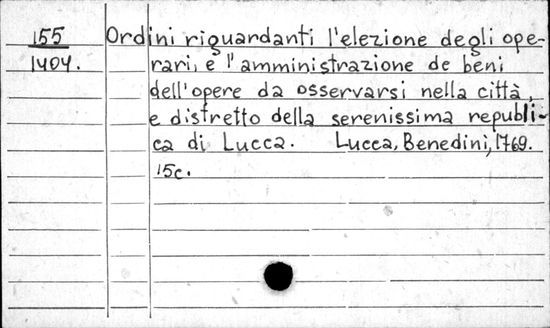 155 Ordini riguardanti l'elezione degli ope-
1404. rari, e l'amministrazione de beni
dell'opere da osservarsi nella città,
e distretto della serenissima republi-
ca di Lucca. Lucca, Benedini, 1769.
15c.